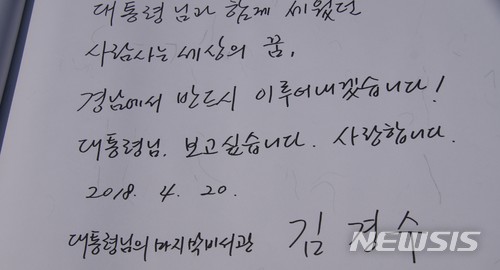 대통령님과 함께 세웠던
사람사는 세상의 꿈,
경남에서 반드시 이루어내겠습니다!
대통령님. 보고싶습니다. 사랑합니다.
2018. 4. 20.
대통령님의 마지막비서관 김 경 수
NEWSIS